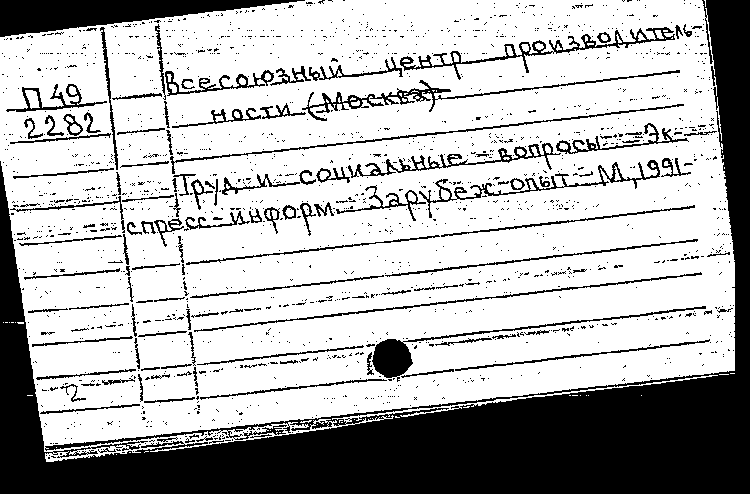 П 49
2282
Всесоюзный центр производитель-
ности (Москва).
Труд и социальные вопросы: Эк-
спресс-информ. Зарубеж. опыт. - М., 1991-
2